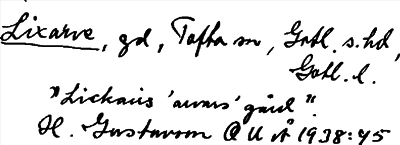 Lixarve, gd, Tofta sn, Gotl. s. hd,
Gotl. l.
"Lickaiis 'arvars' gård".
H. Gustavson OUÅ 1938:45